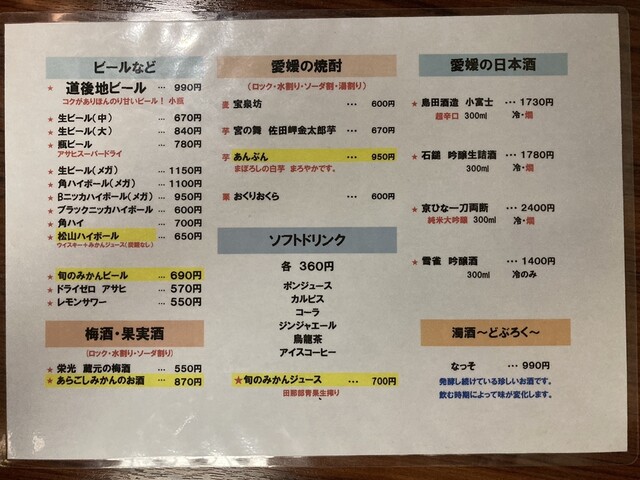 ビールなど
★ 道後地ビール … 990円
コクがありほんのり甘いビール! 小瓶
★ 生ビール(中) … 670円
★ 生ビール(大) … 840円
★ 瓶ビール … 780円
アサヒスーパードライ
★ 生ビール(メガ) … 1150円
★ 角ハイボール(メガ) … 1100円
★ Bニッカハイボール(メガ) … 950円
★ ブラックニッカハイボール … 600円
★ 角ハイ … 700円
★ 松山ハイボール … 650円
ウイスキー+みかんジュース(炭酸なし)
★ 旬のみかんビール … 690円
★ ドライゼロ アサヒ … 570円
★ レモンサワー … 550円
梅酒・果実酒
(ロック・水割り・ソーダ割り)
★ 栄光 蔵元の梅酒 … 550円
★ あらごしみかんのお酒 … 870円
愛媛の焼酎
(ロック・水割り・ソーダ割・湯割り)
麦 宝泉坊 … 600円
芋 宮の舞 佐田岬金太郎芋 … 670円
芋 あんぶん … 950円
まぼろしの白芋 まろやかです。
栗 おくりおくら … 600円
ソフトドリンク
各 360円
ポンジュース
カルピス
コーラ
ジンジャエール
烏龍茶
アイスコーヒー
★旬のみかんジュース … 700円
田那部青果生搾り
愛媛の日本酒
★ 島田酒造 小富士 … 1730円
超辛口 300ml 冷・燗
★ 石鎚 吟醸生詰酒 … 1780円
300ml 冷・燗
★ 京ひな一刀両断 … 2400円
純米大吟醸 300ml 冷・燗
★ 雪雀 吟醸酒 … 1400円
300ml 冷のみ
濁酒～どぶろく～
なっそ … 990円
発酵し続けている珍しいお酒です。
飲む時期によって味が変化します。